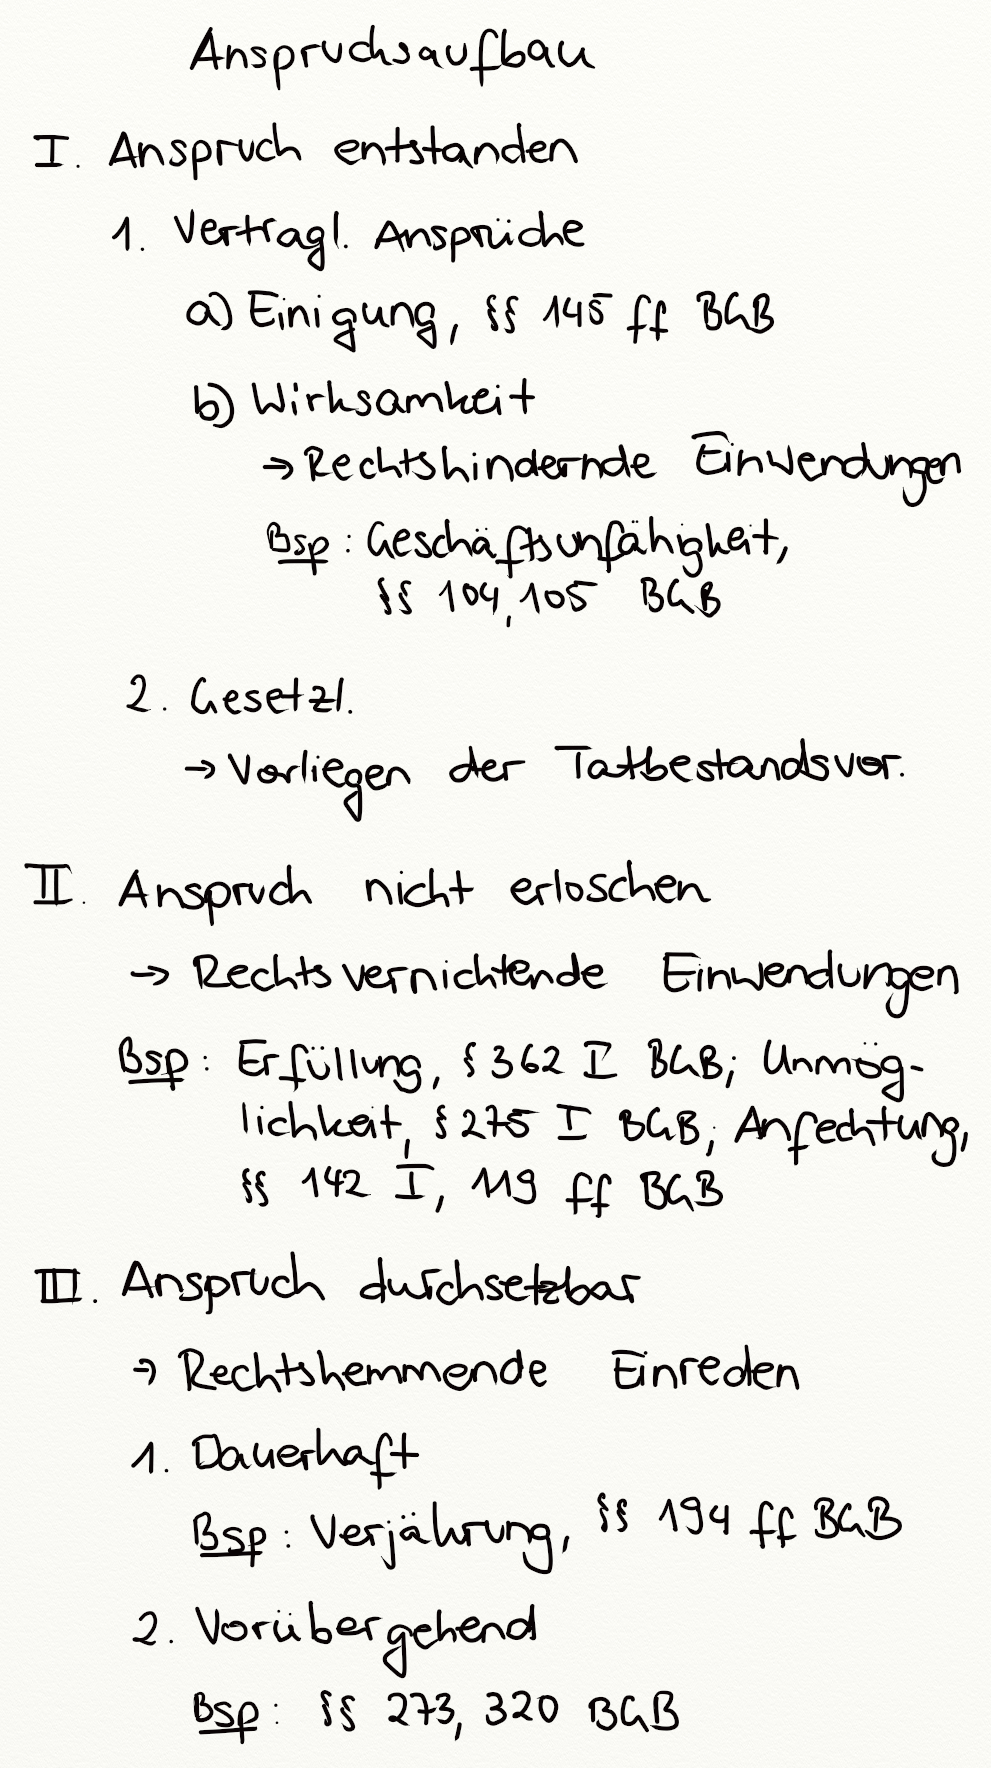 Anspruchsaufbau
I. Anspruch entstanden
1. Vertragl. Ansprüche
a) Einigung, §§ 145 ff BGB
b) Wirksamkeit
→ Rechtshindernde Einwendungen
Bsp: Geschäftsunfähigkeit,
§§ 104, 105 BGB
2. Gesetzl.
→ Vorliegen der Tatbestandsvor.
II. Anspruch nicht erloschen
→ Rechtsvernichtende Einwendungen
Bsp: Erfüllung, § 362 I BGB; Unmög-
lichkeit, § 275 I BGB; Anfechtung,
§§ 142 I, 119 ff BGB
III. Anspruch durchsetzbar
→ Rechtshemmende Einreden
1. Dauerhaft
Bsp: Verjährung, §§ 194 ff BGB
2. Vorübergehend
Bsp: §§ 273, 320 BGB